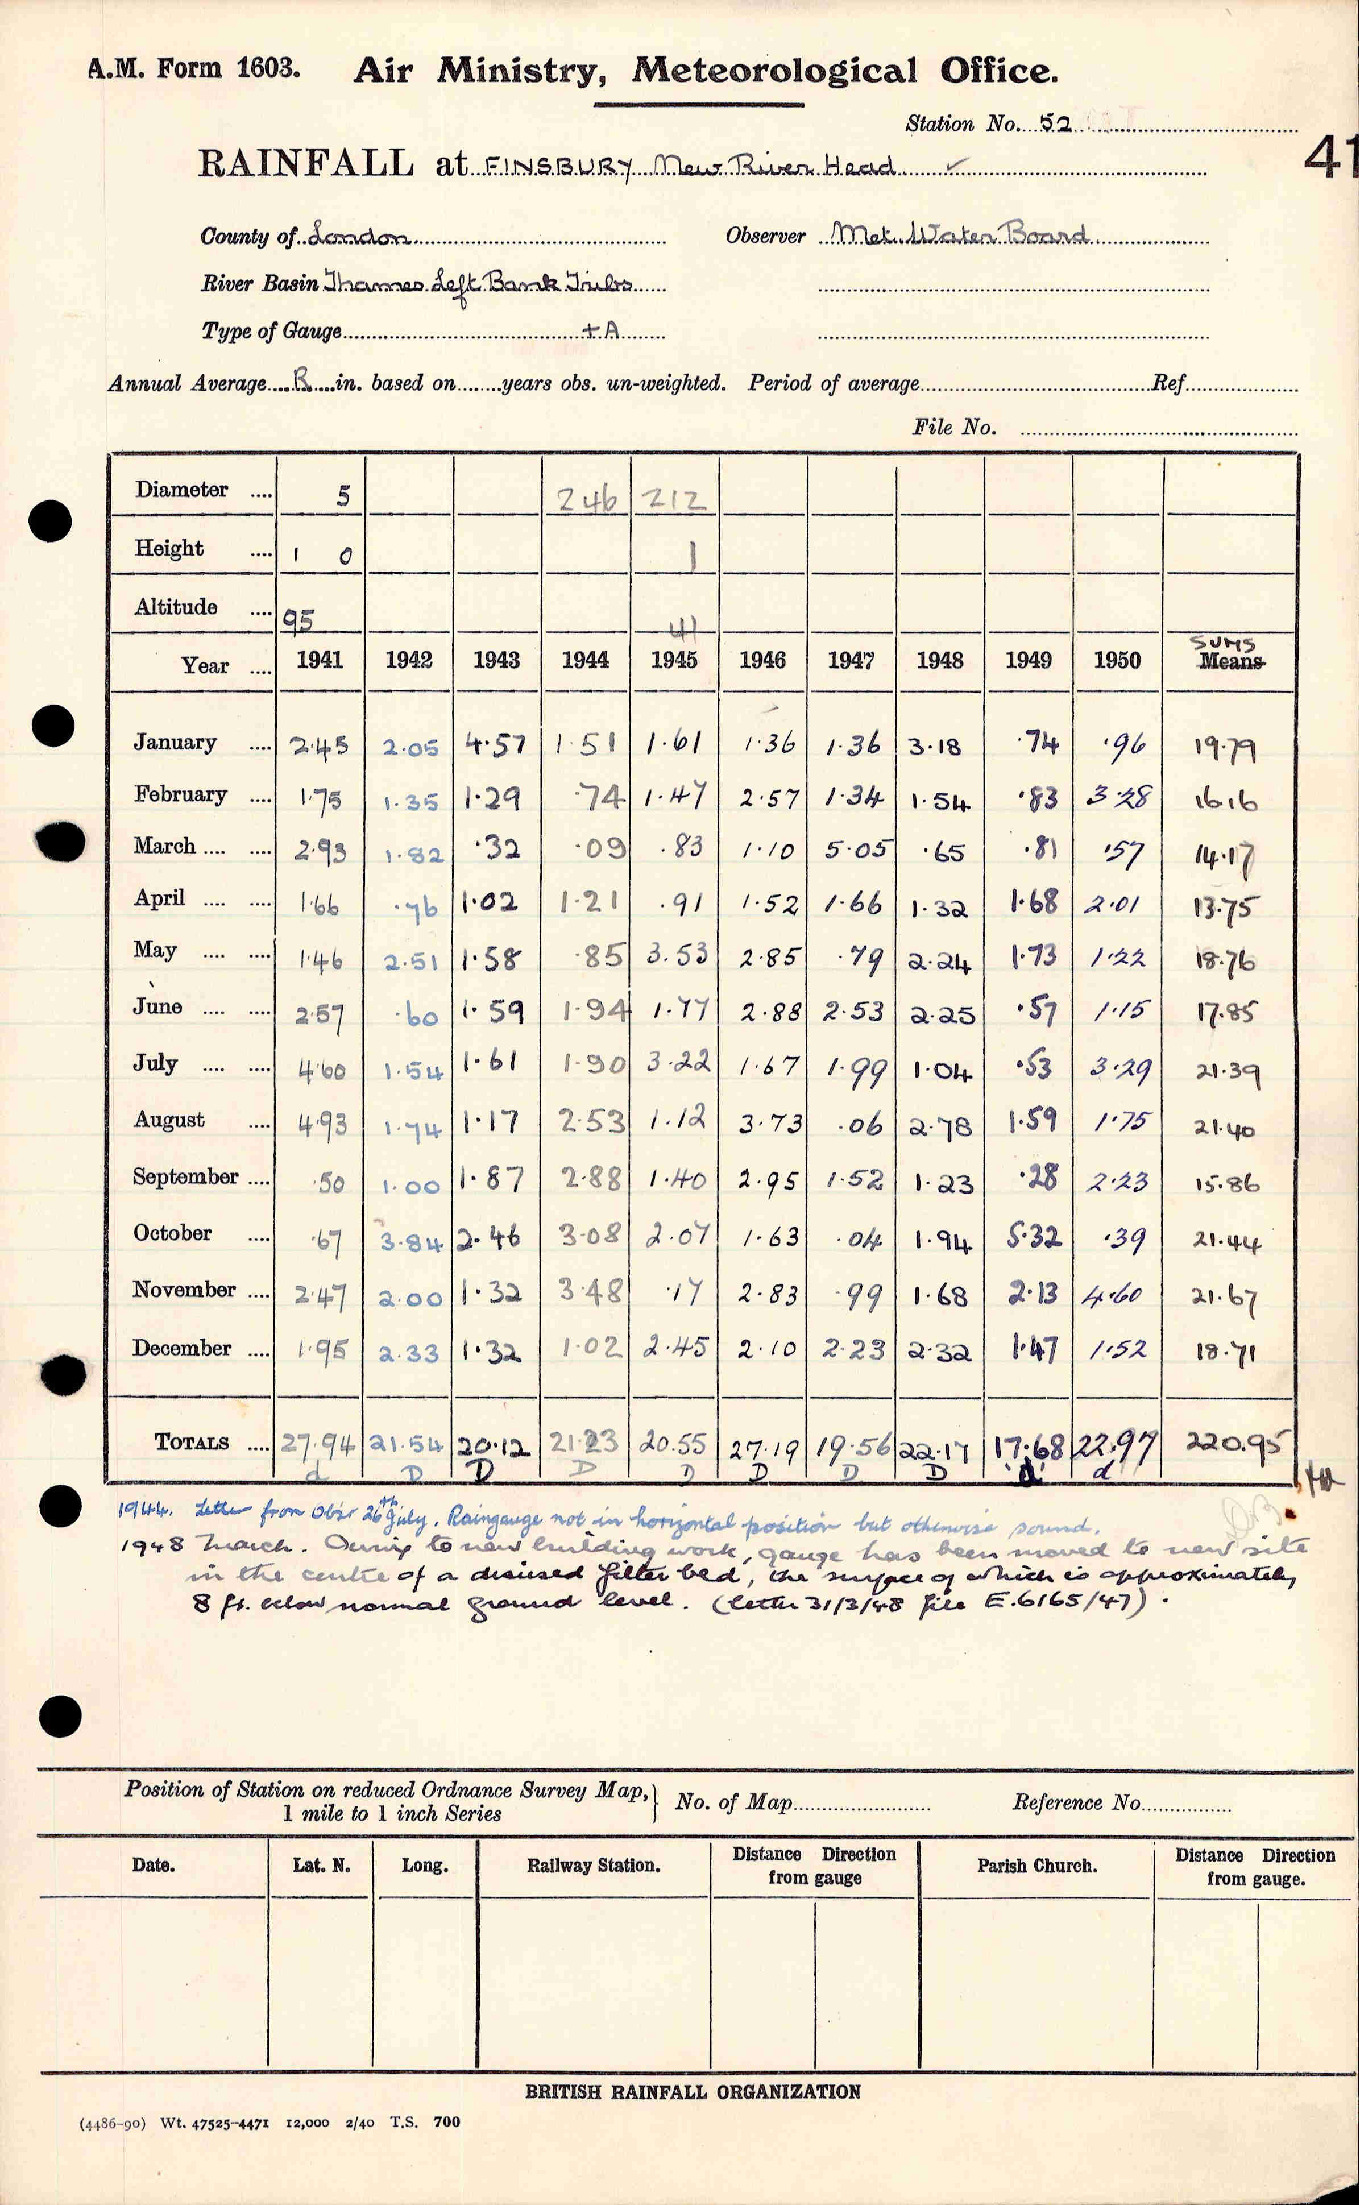 A.M. Form 1603. Air Ministry, Meteorological Office.
Station No. 52
41
RAINFALL at FINSBURY New River Head ✓
County of London Observer Met. Water Board
River Basin Thames Left Bank Tribs
Type of Gauge +A
Annual Average R in. based on years obs. un-weighted. Period of average Ref.
File No.
Diameter .... 5 246 212
Height .... 1 0 1
Altitude .... 95 41
SUMS
Year .... 1941 1942 1943 1944 1945 1946 1947 1948 1949 1950 Means
January .... 2.45 2.05 4.57 1.51 1.61 1.36 1.36 3.18 .74 .96 19.79
February .... 1.75 1.35 1.29 .74 1.47 2.57 1.34 1.54 .83 3.28 16.16
March .... .... 2.93 1.82 .32 .09 .83 1.10 5.05 .65 .81 .57 14.17
April .... .... 1.66 .76 1.02 1.21 .91 1.52 1.66 1.32 1.68 2.01 13.75
May .... .... 1.46 2.51 1.58 .85 3.53 2.85 .79 2.24 1.73 1.22 18.76
June .... .... 2.57 .60 1.59 1.94 1.77 2.88 2.53 2.25 .57 1.15 17.85
July .... .... 4.60 1.54 1.61 1.90 3.22 1.67 1.99 1.04 .53 3.29 21.39
August .... 4.93 1.74 1.17 2.53 1.12 3.73 .06 2.78 1.59 1.75 21.40
September .... .50 1.00 1.87 2.88 1.40 2.95 1.52 1.23 .28 2.23 15.86
October .... .67 3.84 2.46 3.08 2.07 1.63 .04 1.94 5.32 .39 21.44
November .... 2.47 2.00 1.32 3.48 .17 2.83 .99 1.68 2.13 4.60 21.67
December .... 1.95 2.33 1.32 1.02 2.45 2.10 2.23 2.32 1.47 1.52 18.71
TOTALS .... 27.94 21.54 20.12 21.23 20.55 27.19 19.56 22.17 17.68 22.97 220.95
d D D D D D D D d d
1944. Letter from Obsr 26th July. Raingauge not in horizontal position but otherwise sound.
1948 March. Owing to new building work, gauge has been moved to new site
in the centre of a disused filter bed, the surface of which is approximately
8 ft. below normal ground level. (letter 31/3/48 file E.6165/47).
Position of Station on reduced Ordnance Survey Map, } No. of Map Reference No.
1 mile to 1 inch Series
Date. Lat. N. Long. Railway Station. Distance Direction from gauge Parish Church. Distance Direction from gauge.
BRITISH RAINFALL ORGANIZATION
(4486-90) Wt. 47525-4471 12,000 2/40 T.S. 700